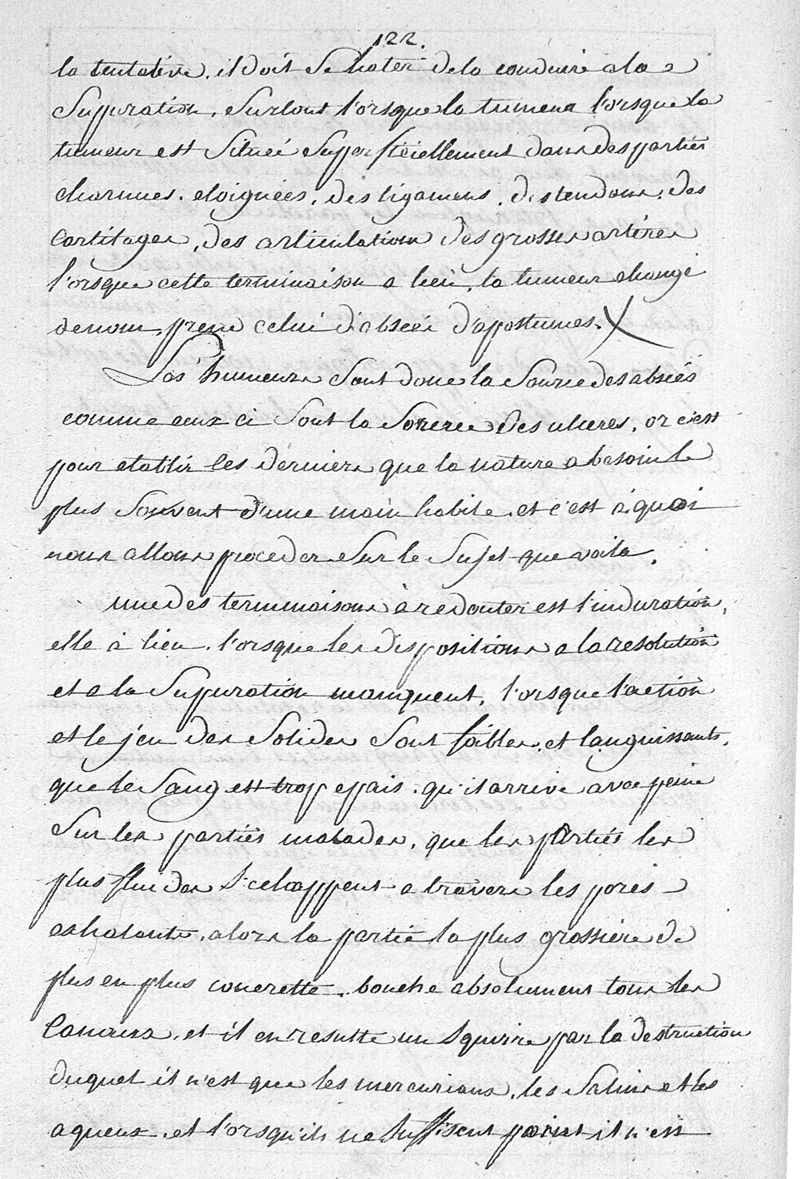 122.
la tentative, il doit se hater de la conduire a la
Supuration, surtout l'orsque la tumeur l'orsque la
tumeur est située superficiellement dans des parties
charnues, eloignées, des ligamens, des tendons, des
cartilages, des articulations des grosses artères
l'orsque cette terminaison a lieu, la tumeur change
de nom, prend celui d'abscès d'apostumes.
Les humeurs sont donc la source des absces
comme ceux ci sont la source des ulceres, or c'est
pour etablir ces derniers que la nature a besoin le
plus souvent d'une main habile, et c'est à quoi
nous allons proceder sur le sujet que voila.
une des terminaisons à redouter est l'induration,
elle à lieu, l'orsque les dispositions a la resolution
et a la supuration manquent, l'orsque l'action
et le jeu des solides sont faibles, et languissants,
que le sang est trop epais, qu'il arrive avec peine
sur les parties malades, que les parties les
plus fluides s'echappent a travers les pores
exhalants, alors la partie la plus grossière de
plus en plus concrette, bouche absolument tous les
canaux, et il en resulte un squirre par la destruction
duquel il n'est que les mercuriaux, les salins et les
aqueux, et l'orsqu'ils ne suffisent point il n'est